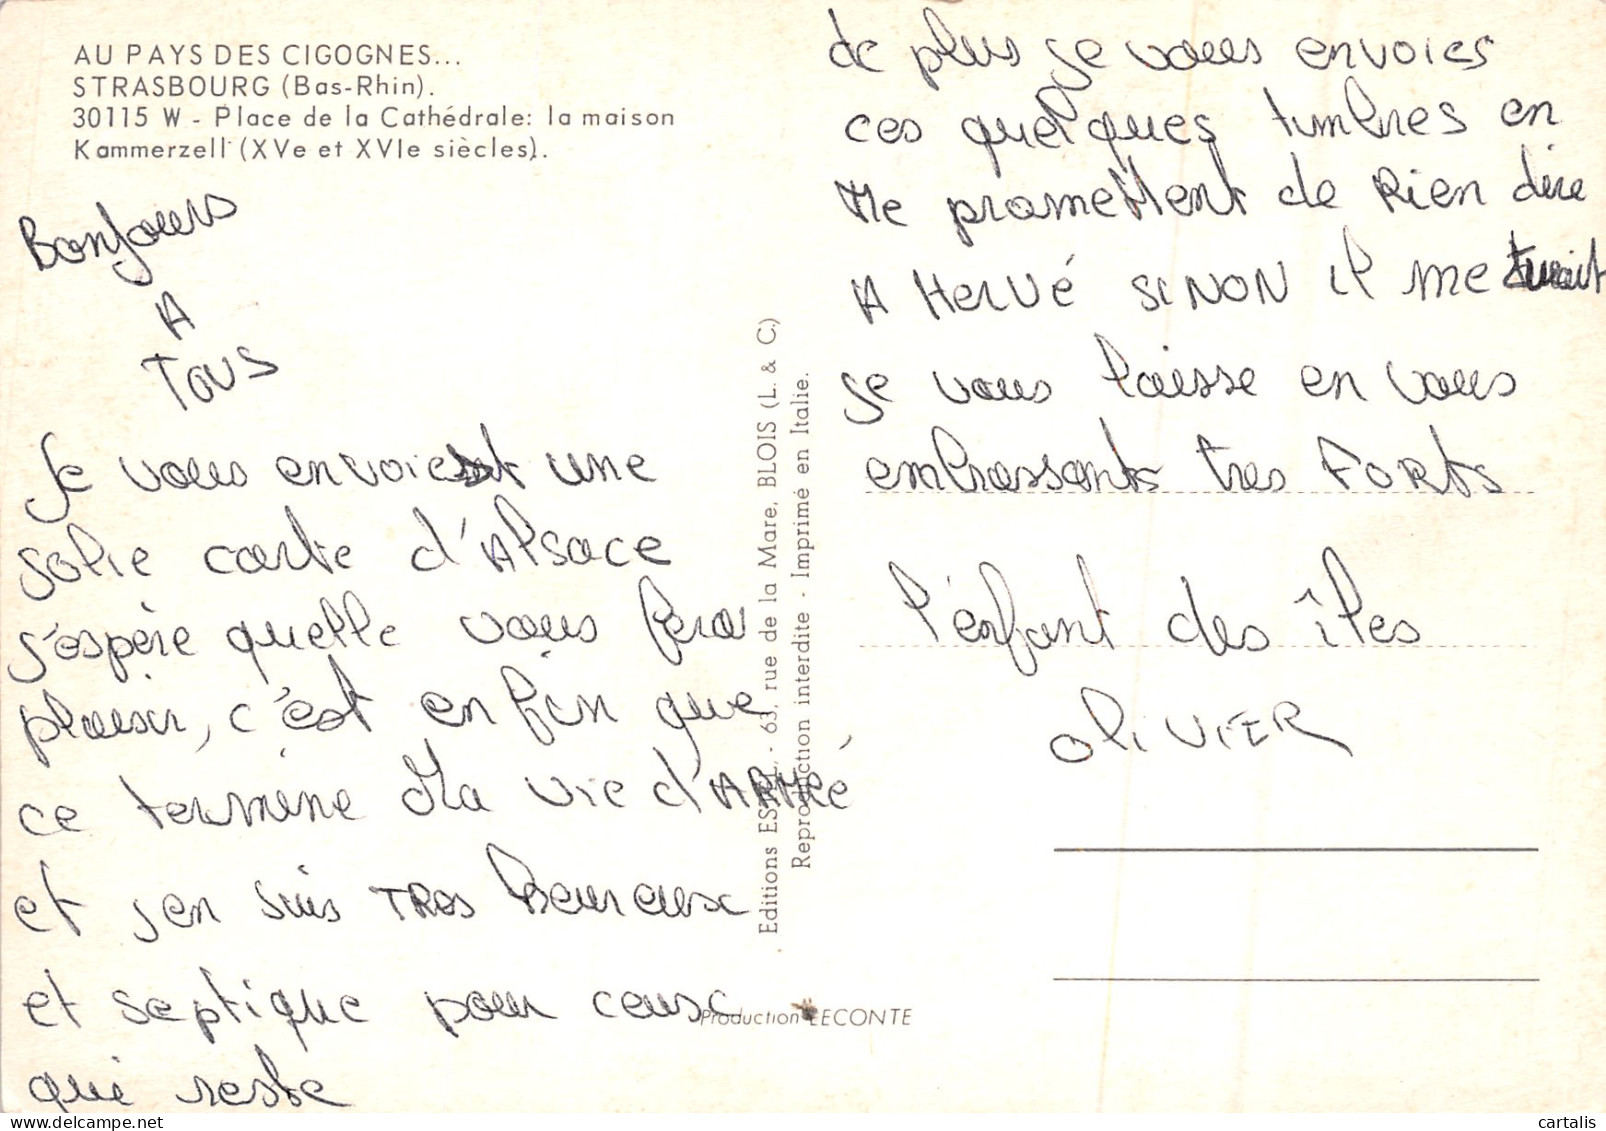 AU PAYS DES CIGOGNES...
STRASBOURG (Bas-Rhin).
30115 W - Place de la Cathédrale: la maison
Kammerzell (XVe et XVIe siècles).
Bonjours
A
TOUS
Je vous envoie une
jolie carte d'Alsace
j'espère quelle vous fera
plaisir, c'est en fin que
ce termine Ma vie d'ARMÉé
et j'en suis TRES heureux
et septique pour ceux
qui reste
de plus je vous envoies
ces quelques timbres en
Me promettent de Rien dire
A HERVÉ SINON il me tuerait
je vous laisse en vous
embrassants tres FORTS
l'enfant des îles
OLIVIER
Editions ESTEL, - 63, rue de la Mare, BLOIS (L. & C.)
Reproduction interdite - Imprimé en Italie.
Production LECONTE
cartalis